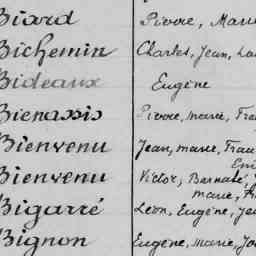 Biard Pierre, Marie
Bichemin Charles, Jean,
Bideaux Eugène
Bienassis Pierre, marie,
Bienvenu Jean, marie,
Bienvenu Victor, Barnabé,
marie,
Bigarré Léon, Eugène,
Bignon Eugène, marie,